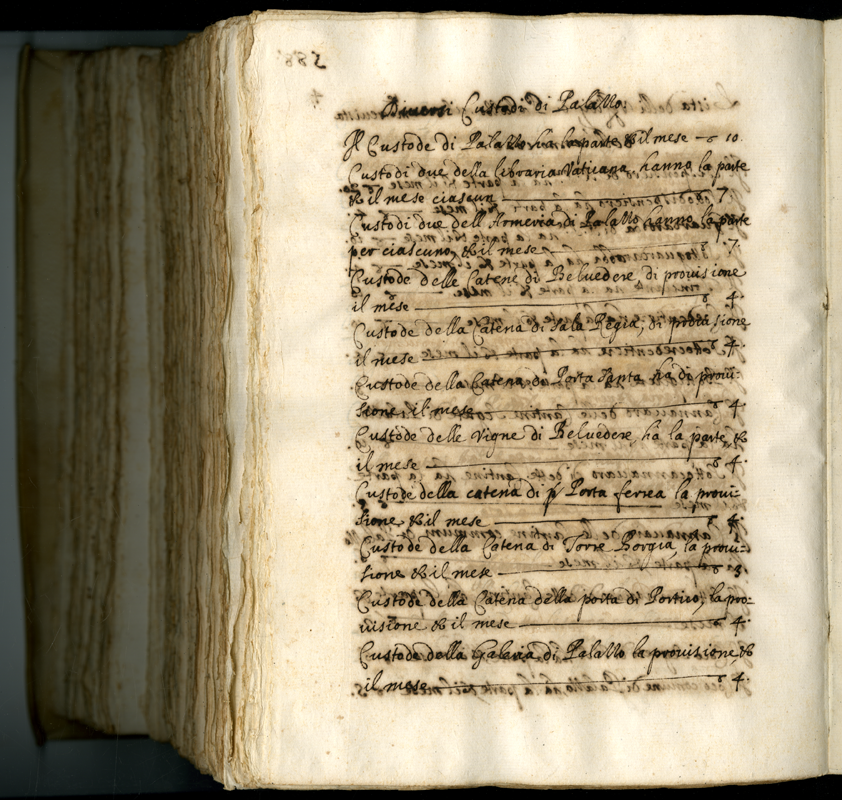 Diversi Custodi di Palazzo.
Il Custode di Palazzo ha la parte & il mese — 10.
Custodi due della libraria Vaticana, hanno la parte
& il mese ciascun — 7
Custodi due dell'Armeria di Palazzo hanno la parte
per ciascuno, & il mese — 7.
Custode delle Catene di Belvedere, di provisione
il mese — 4.
Custode della Catena di Sala Regia, di provisione
il mese — 4.
Custode della Catena di Porta Santa ha di provi-
sione il mese — 4.
Custode delle Vigne di Belvedere ha la parte, &
il mese — 4.
Custode della catena di Porta ferrea la provi-
sione, & il mese — 4.
Custode della Catena di Torre Borgia, la provi-
sione & il mese — 3.
Custode della Catena della porta di Portico, la pro-
visione & il mese — 4.
Custode della Galaria di Palazzo la provisione, &
il mese — 4.